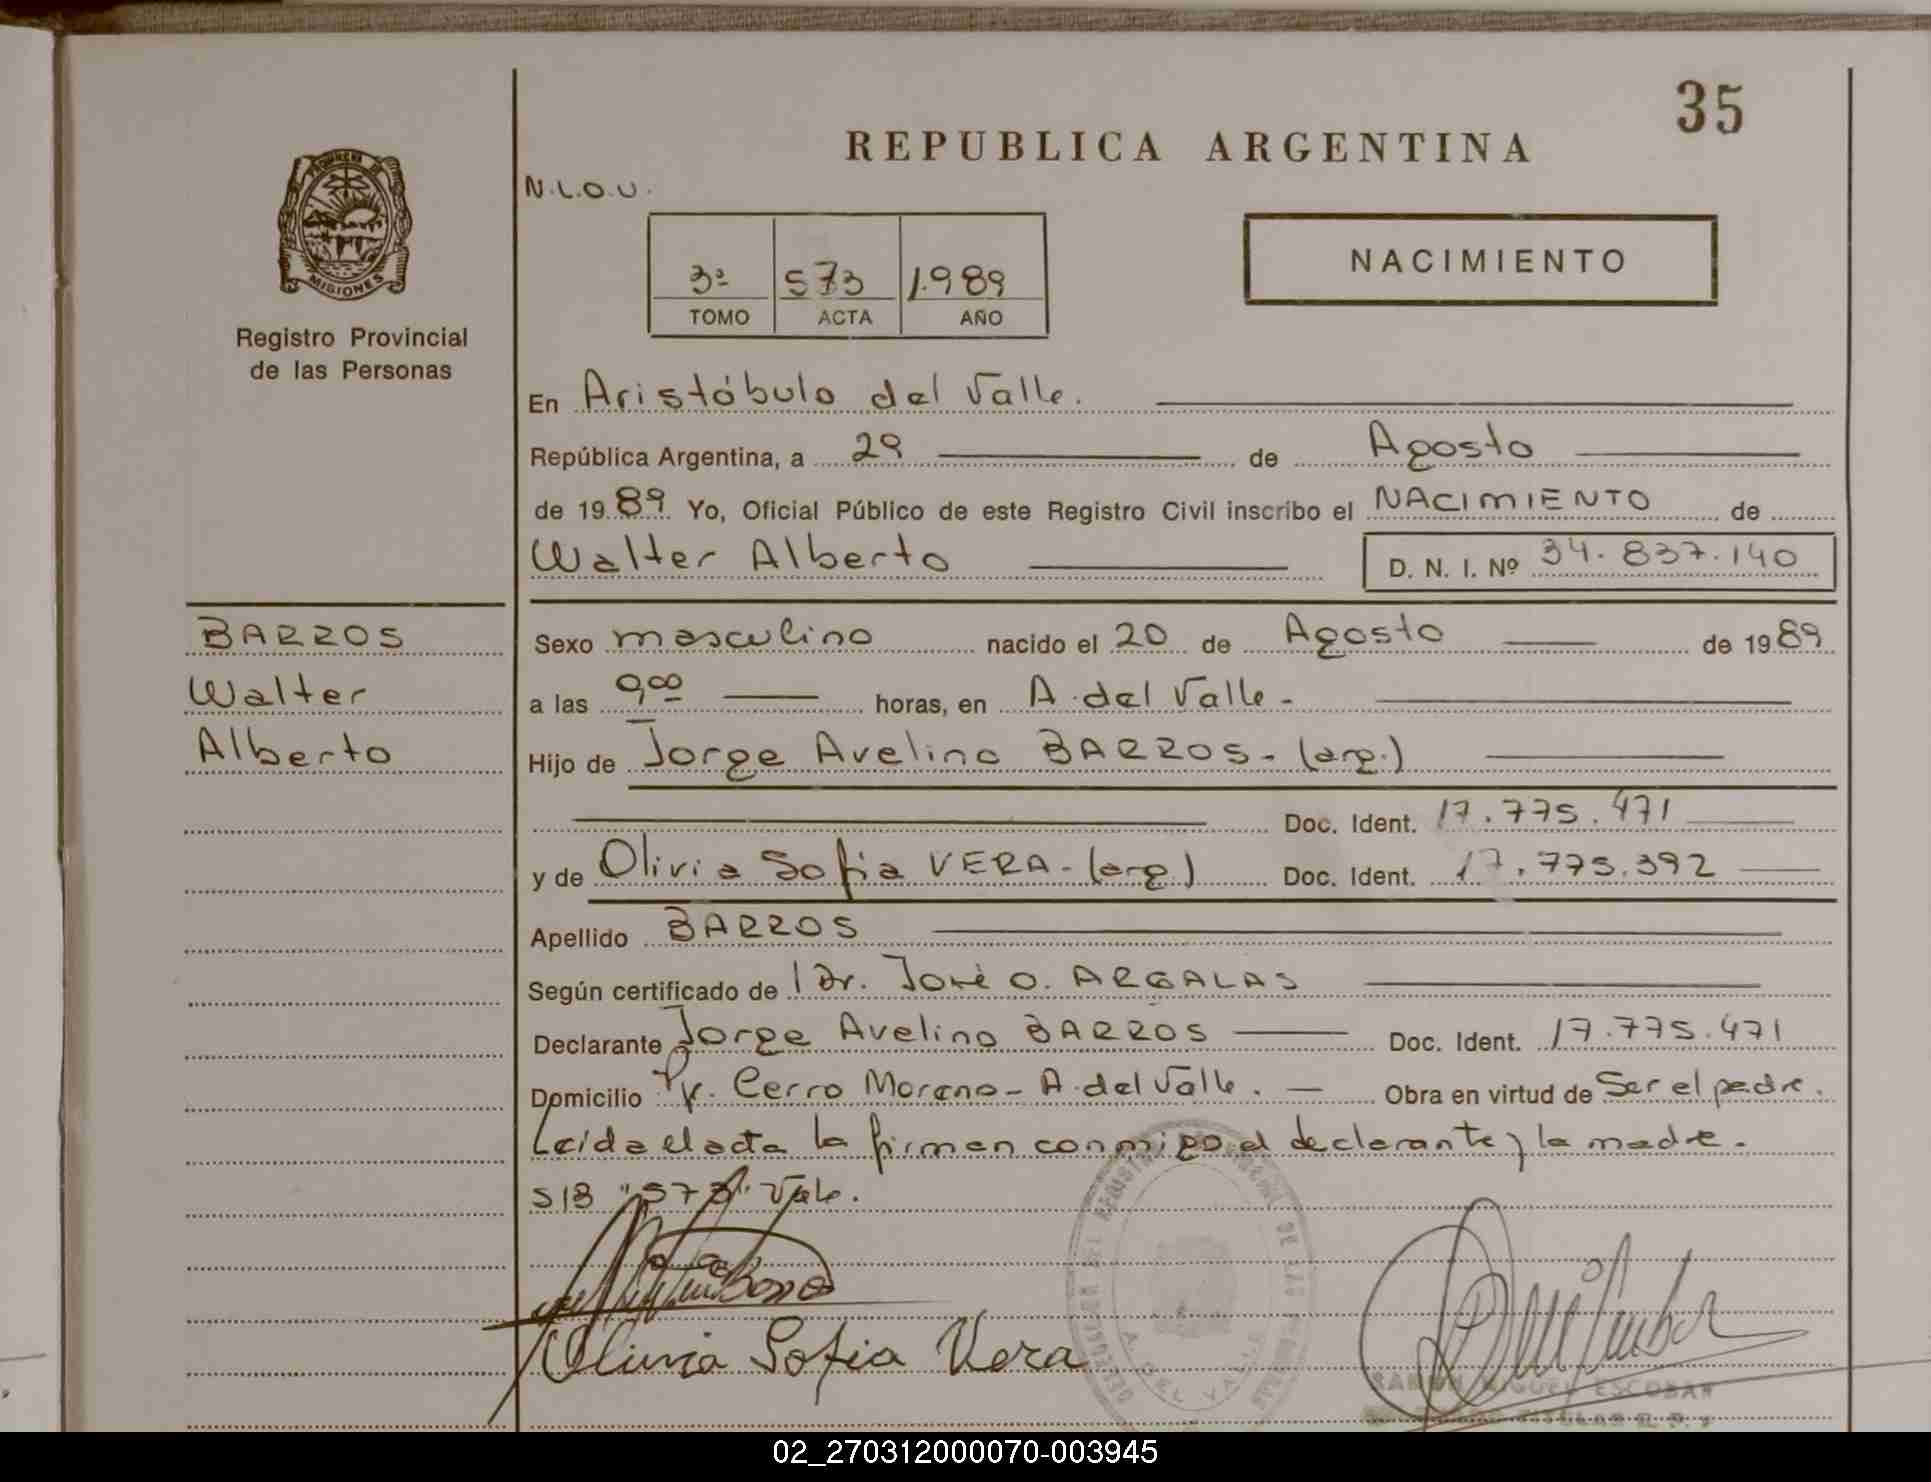 35
REPUBLICA ARGENTINA
PROVINCIA DE
MISIONES
Registro Provincial
de las Personas
N.L.O.U.
3º 573 1.989
TOMO ACTA AÑO
NACIMIENTO
En Aristóbulo del Valle.
República Argentina, a 29 de Agosto
de 1989 Yo, Oficial Público de este Registro Civil inscribo el NACIMIENTO de
Walter Alberto D. N. I. Nº 34.837.140
BARROS
Walter
Alberto
Sexo masculino nacido el 20 de Agosto de 1989
a las 9,00 horas, en A. del Valle.-
Hijo de Jorge Avelino BARROS.- (arg.)
Doc. Ident. 17.775.471
y de Olivia Sofia VERA.- (arg.) Doc. Ident. 17.775.392
Apellido BARROS
Según certificado de Dr. José O. ARGALAS
Declarante Jorge Avelino BARROS Doc. Ident. 17.775.471
Domicilio Cerro Moreno - A. del Valle. Obra en virtud de Ser el padre.
Leída el acta la firman conmigo el declarante y la madre.
S/B "573" Vale.
Olivia Sofia Vera
A. DEL VALLE
RAMON MIGUEL ESCOBAR
02_270312000070-003945